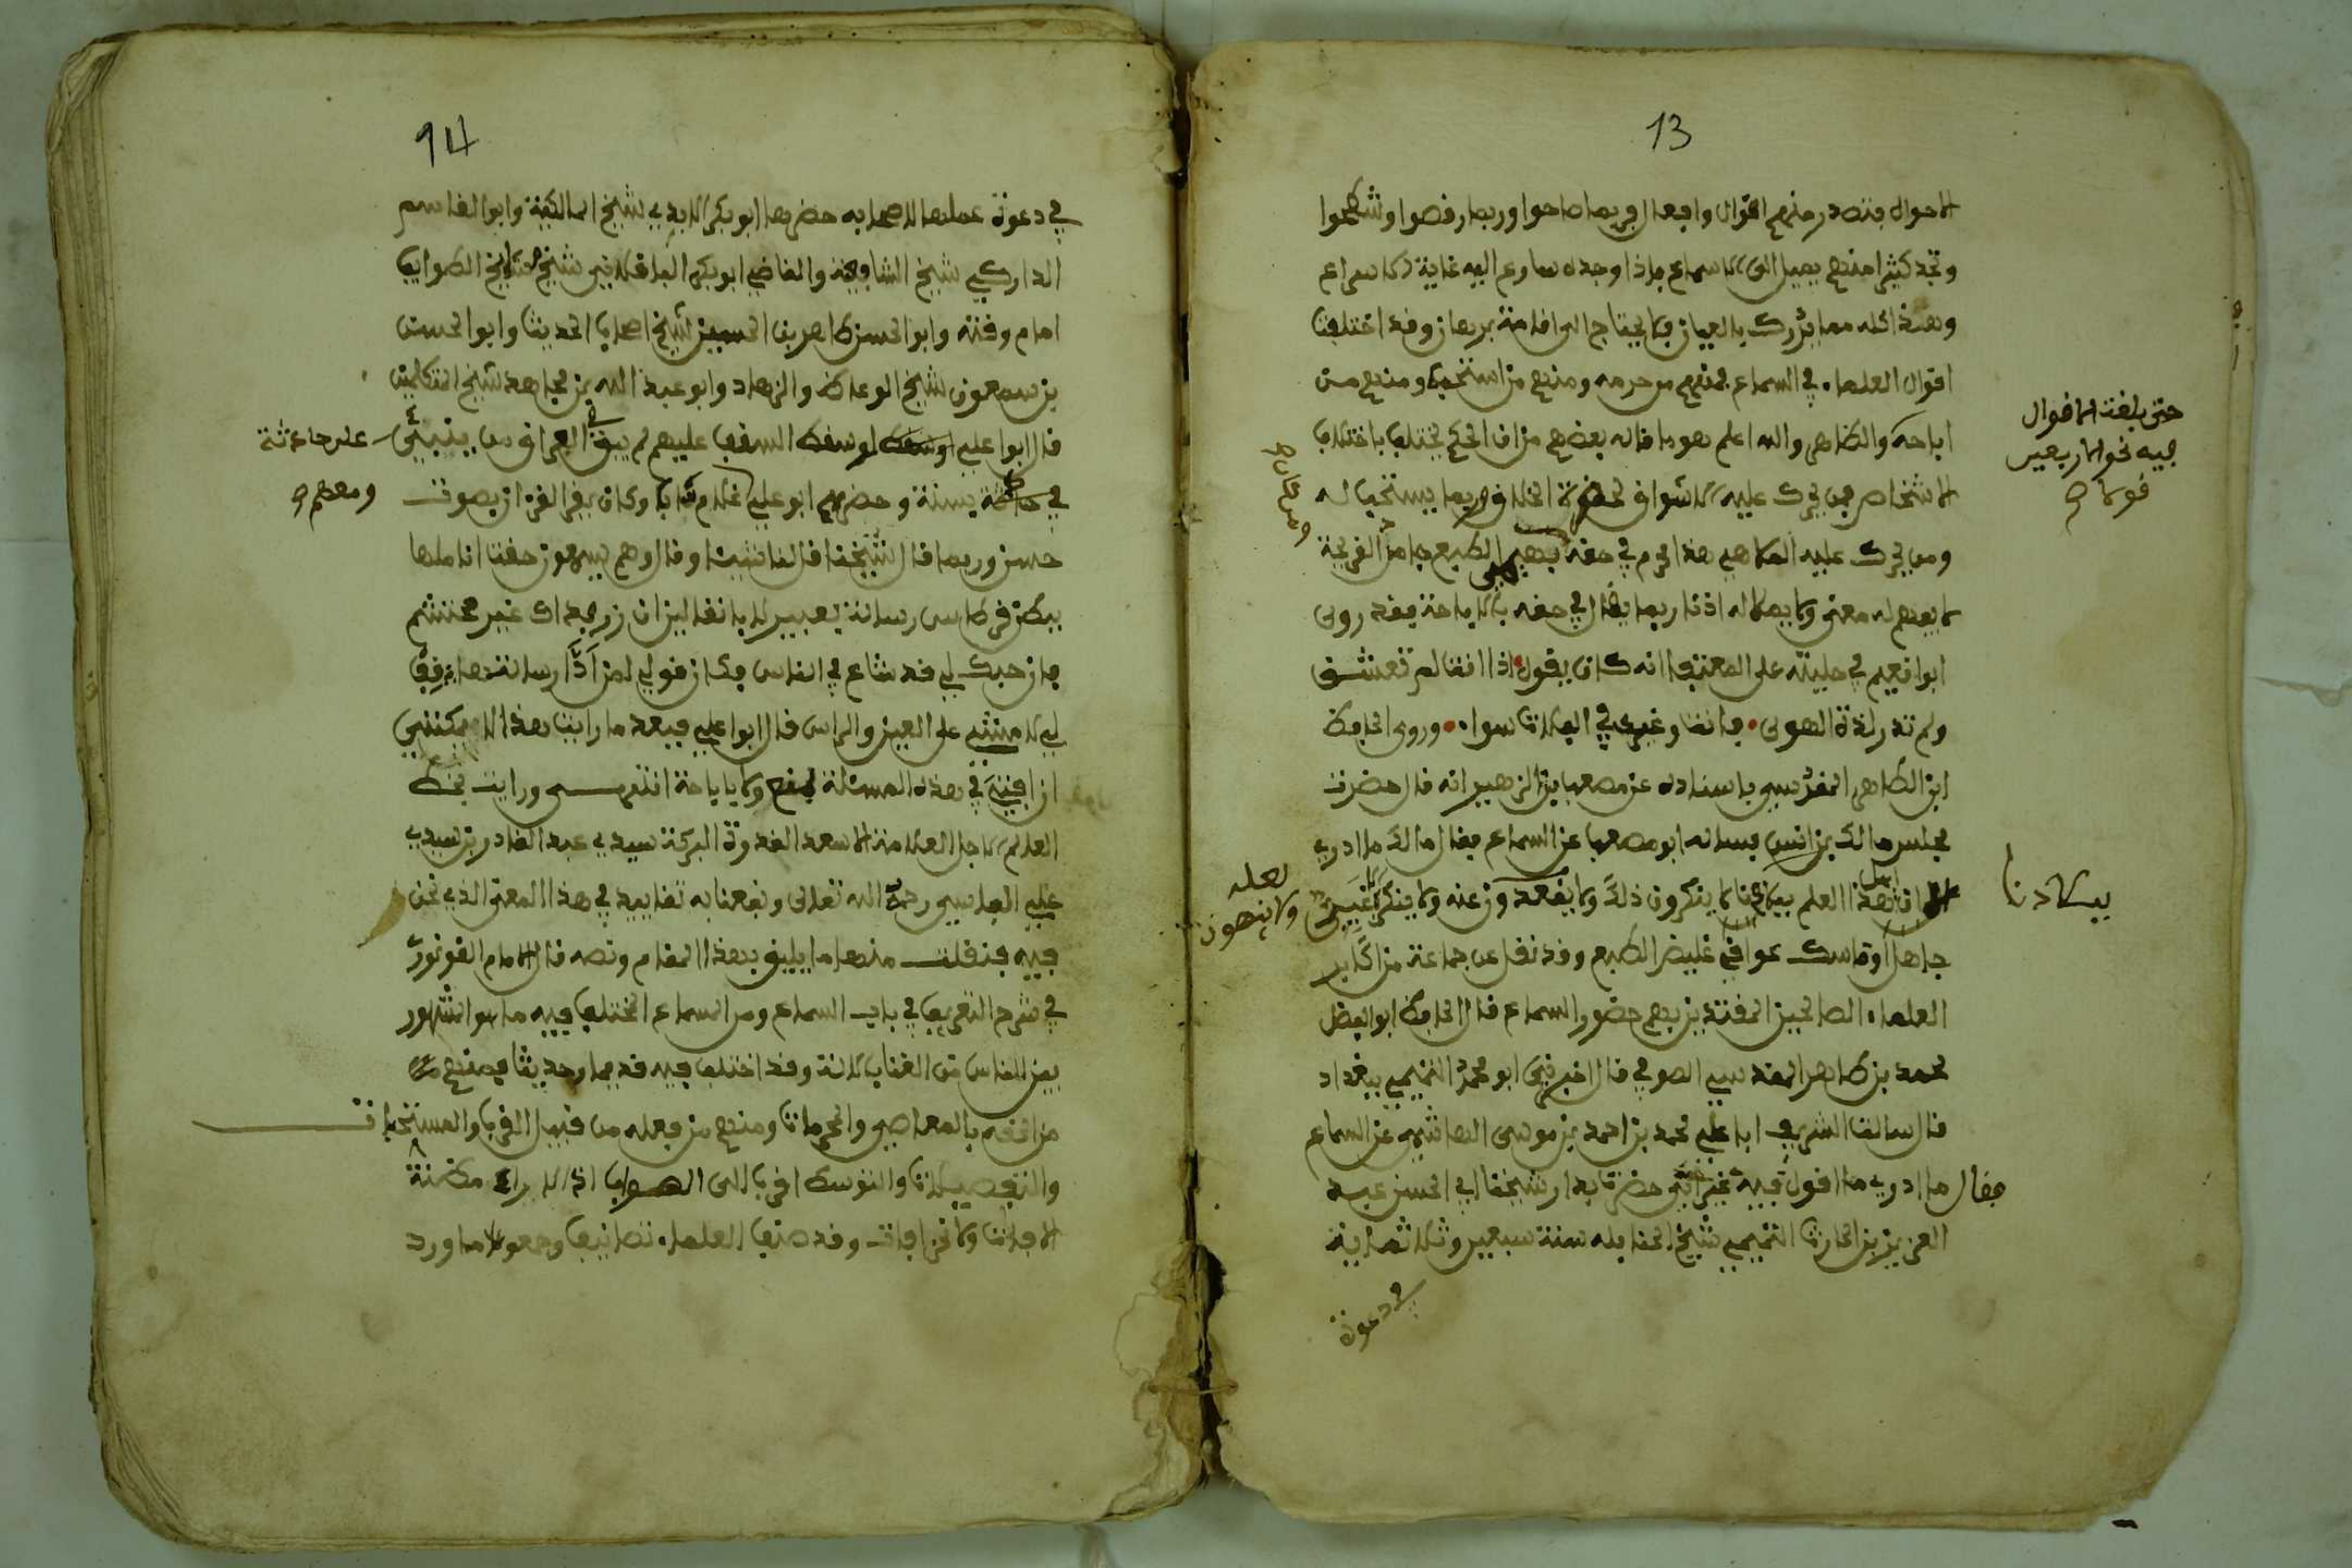 13
الاحوال فتصدر منهم اقوال وافعال فربما صاحوا وربما رقصوا وشطحوا
وتجد كثيرا منهم يميل الى السماع فاذا وجده سارع اليه غاية الاسراع
وهذا كله مما يدرك بالعيان فلا يحتاج الى اقامة برهان وقد اختلفت
اقوال العلماء في السماع فمنهم من حرمه ومنهم من استحبه ومنهم من
حتى بلغت الاقوال
فيه نحو الاربعين
قولا صح
اباحه والظاهر والله اعلم هو ما قاله بعضهم من ان الحكم يختلف باختلاف
الاشخاص فمن يحرك عليه الاشواق لحضرة الخلاق ربما يستحب له
ومن يحرك عليه الملاهي هذا يحرم في حقه الطبع جامد القريحة
لا يفهم له معنى ولا يملا له اذنا ربما يقال في حقه بالاباحة فقد روى
ابو نعيم في حليته على المعتب انه كان يقول اذا انت لم تعشق
ولم تدر لذة الهوى فانت وعير في الفلاة سواء وروى الحافظ
ابن الطاهر المقدسي باسناده عن مصعب بن الزهير انه قال حضرت
مجلس مالك بن انس فسأله ابو مصعب عن السماع فقال مالك ما ادري
اهل العلم ببلادنا لا ينكرون ذلك ولا يقعدون عنه ولا ينكره الا غبي
ببلادنا
لعله
ولا ينهون
جاهل او ناسك عراقي غليظ الطبع وقد نقل عن جماعة من اكابر
العلماء الصالحين المقتدى بهم حضور السماع قال الحافظ ابو الفضل
محمد بن طاهر المقدسي الصوفي قال اخبرني ابو محمد التميمي ببغداد
قال سالت الشريف ابا علي محمد بن احمد بن موسى الهاشمي عن السماع
فقال ما ادري ما اقول فيه غير اني حضرت بدار شيخنا ابي الحسن عبد
العزيز بن الحارث التميمي شيخ الحنابله سنة سبعين وثلاثماية
في دعوة
14
في دعوة عملها لاصحابه حضرها ابو بكر الابهري شيخ المالكية وابو القاسم
الداركي شيخ الشافعية والقاضي ابو بكر الباقلاني شيخ الطوايف
امام وقته وابو الحسن طاهر بن الحسين شيخ اصحاب الحديث وابو الحسن
بن سمعون شيخ الوعاظ والزهاد وابو عبد الله بن مجاهد شيخ المتكلمين
قال ابو علي لو سقط السقف عليهم لم يبق في العراق من يفتي على حادثة
في حادثة بسنة وحضرهم ابو علي غلام شابا وكان يقرا القرءان بصوت
ومعهم صح
حسن وربما قال شيخنا قال لنا شيئا وقال وهم يسمعون خطت اناملها
ببطن قرطاس رسالة بعبير لا بانقاس ان زر فديتك غير محتشم
فان حبك لي قد شاع في الناس فكان قولي لمن ادا رسالتها قف
لي لامشي على العين والراس قال ابو علي فبعد ما رايت هذا لا يمكنني
ان افتي في هذه المسئلة بمنع ولا باباحة انتهى ورايت بخط
العالم الاجل العلامة الاسعد القدوة البركة سيدي عبد القادر بن سيدي
علي الفاسي رحمه الله تعالى ونفعنا به تقاييد في هذا المعنى الذي نحن
فيه فنقلت منها ما يليق بهذا المقام ونصه قال الامام القونوي
في شرح التعرف في باب السماع ومن السماع المختلف فيه ما هو المشهور
بين الناس من الغناء بالالة وقد اختلف فيه قديما وحديثا فمنهم
من الحقه بالمعاصي والمحرمات ومنهم من جعله من قبيل القرب والمستحبات
والتفصيل والتوسط اقرب الى الصواب اذ الاراء مظنة
الافات والخرافات وقد صنف العلماء تصانيف وجمعوا ما ورد